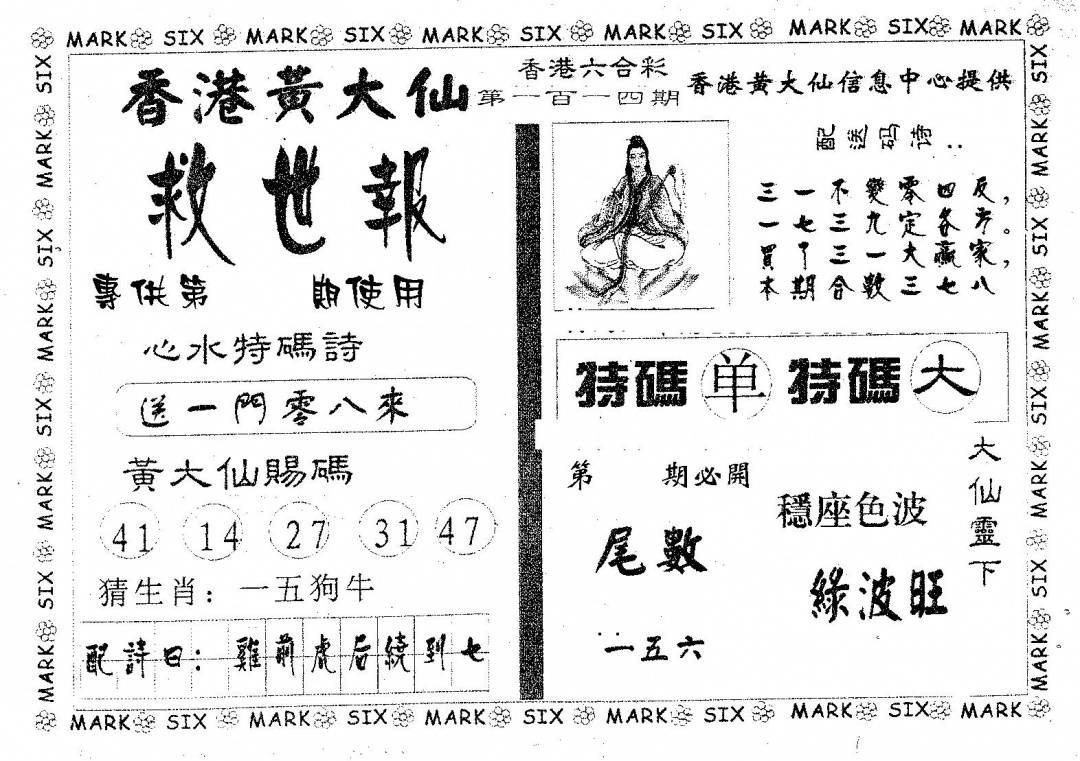 MARK SIX MARK SIX MARK SIX MARK SIX MARK SIX MARK
香港黃大仙
救世報
專供第 期使用
心水特碼詩
送一門零八來
黃大仙賜碼
41 14 27 31 47
猜生肖：一五狗牛
配詩曰：雞前虎后繞到七
香港六合彩
第一百一四期
香港黃大仙信息中心提供
配送码诗：
三一不變零四反，
一七三九定各方。
買了三一大贏家，
本期合數三七八
特碼 单 特碼 大
第 期必開
尾數
一五六
穩座色波
綠波旺
大仙靈下
MARK SIX MARK SIX MARK SIX MARK SIX MARK SIX MARK
SIX MARK SIX MARK SIX MARK SIX MARK
SIX MARK SIX MARK SIX MARK SIX MARK